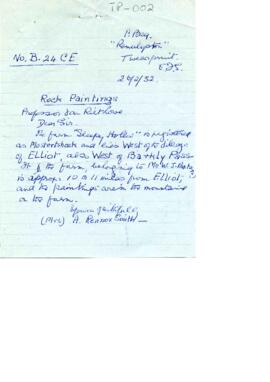 TP-002
P. Bag,
"Ramalepton"
No. B. 24 CE
E.D.S.
20/2/52.
Rock Paintings
Professor van Riet Lowe
Dear Sir.
The farm "Sleepy Hollow" is registered
as Mostertshoek and lies West of the village
of Elliot, also West of Barkly Pass
the farm, belonging to Mr W. J.
is approx: 10 or 11 miles from Elliot,
and the paintings are in the mountains
on the farm.
Yours faithfully,
(Mrs) A. Rennox Smith.